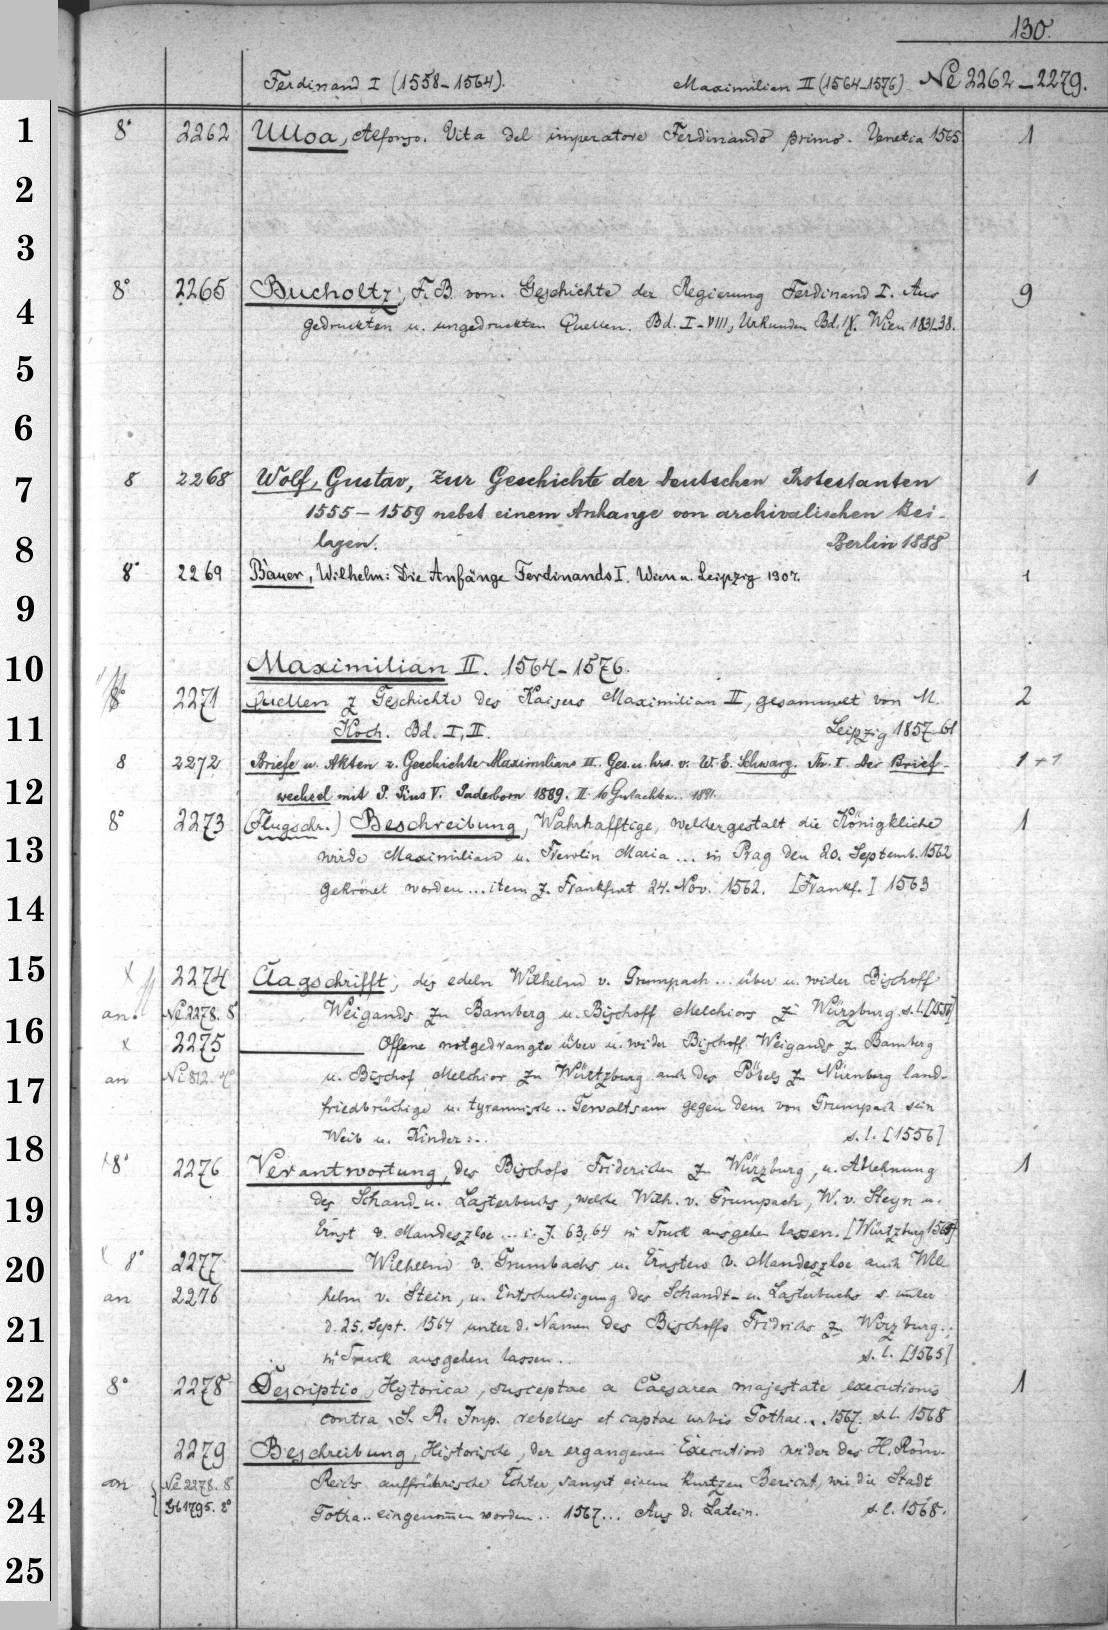 130.
Ferdinand I (1558-1564). Maximilian II (1564-1576) Ne 2262-2279.
1 8° 2262 Ulloa, Alfonso. Vita del imperatore Ferdinando primo. Venetia 1565 1
2
3
8° 2265 Bucholtz, F. B. von. Geschichte der Regierung Ferdinand I. Aus 9
4 gedruckten u. ungedruckten Quellen. Bd. I-VIII, Urkunden Bd. IX. Wien 1831-38.
5
6
7 8 2268 Wolf, Gustav, zur Geschichte der Deutschen Protestanten 1
1555-1559 nebst einem Anhange von archivalischen Bei-
8 lagen. Berlin 1888
8° 2269 Bauer, Wilhelm: Die Anfänge Ferdinands I. Wien u. Leipzig 1907. 1
9
10 Maximilian II. 1564-1576.
8° 2271 Quellen z Geschichte des Kaisers Maximilian II, gesammelt von M. 2
11 Koch. Bd. I, II. Leipzig 1857-61
8 2272 Briefe u. Akten z. Geschichte Maximilians II. Ges. u. hrs. v. W. E. Schwarz. Th. I. Der Brief- 1+1
12 wechsel mit P. Pius V. Paderborn 1889. II. 10 Gutachten.. 1891.
8° 2273 (Flugschr.) Beschreibung, Wahrhafftige, welchergestalt die Königkliche 1
13 wirde Maximilian u. Frewlin Maria ... in Prag den 20. Septemb. 1562
gekrönet worden ... item z. Frankfurt 24. Nov. 1562. [Frankf.] 1563
14
15 X 2274 Clagschrifft, des edeln Wilhelm v. Grumpach ... über u. wider Bischoff
an. Ne 2278. 8° Weigands zu Bamberg u. Bischoff Melchiors zu Würzburg. s. l. [1556]
16 x 2275 Offene notgedrangte über u. wider Bischoff Weigands z. Bamberg
an Ne 812. 4° u. Bischof Melchior zu Würtzburg auch des Pöbels z. Nürnberg land-
17 friedbrüchige u. tyrannische .. Gewaltsam gegen dem von Grumpach sein
Weib u. Kinder ... s. l. [1556]
18 8° 2276 Verantwortung, des Bischofs Friderichen z. Würzburg, u. Ablehnung 1
19 des Schand- u. Lasterbuchs, welche Wilh. v. Grumpach, W. v. Steyn u.
Ernst v. Mandeszloe ... i. J. 63, 64 in Truck ausgehen lassen. [Würtzburg 1565]
20 8° 2277 Wilhelm v. Grumbachs u. Ernsten v. Mandeszloe auch Wil
an 2276 helm v. Stein, u. Entschuldigung des Schandt- u. Lasterbuchs s. unter
21 d. 25. Sept. 1564 unter d. Namen des Bischoffs Fridrichs z. Würzburg..
in Truck ausgehen lassen .. s. l. [1565]
22 8° 2278 Descriptio, Hystorica, susceptae a Caesarea majestate executionis 1
contra S. R. Imp. rebelles et captae urbis Gothae ... 1567. s. l. 1568
23 2279 Beschreibung, Historische, der ergangenen Execution wider des H. Röm.
an Ne 2278. 8 Reichs auffrührische Echter, sampt einem kurtzen Bericht, wie die Stadt
24 Gb 1795. 2° Gotha .. eingenommen worden .. 1567 ... Aus d. Latein. s. l. 1568.
25